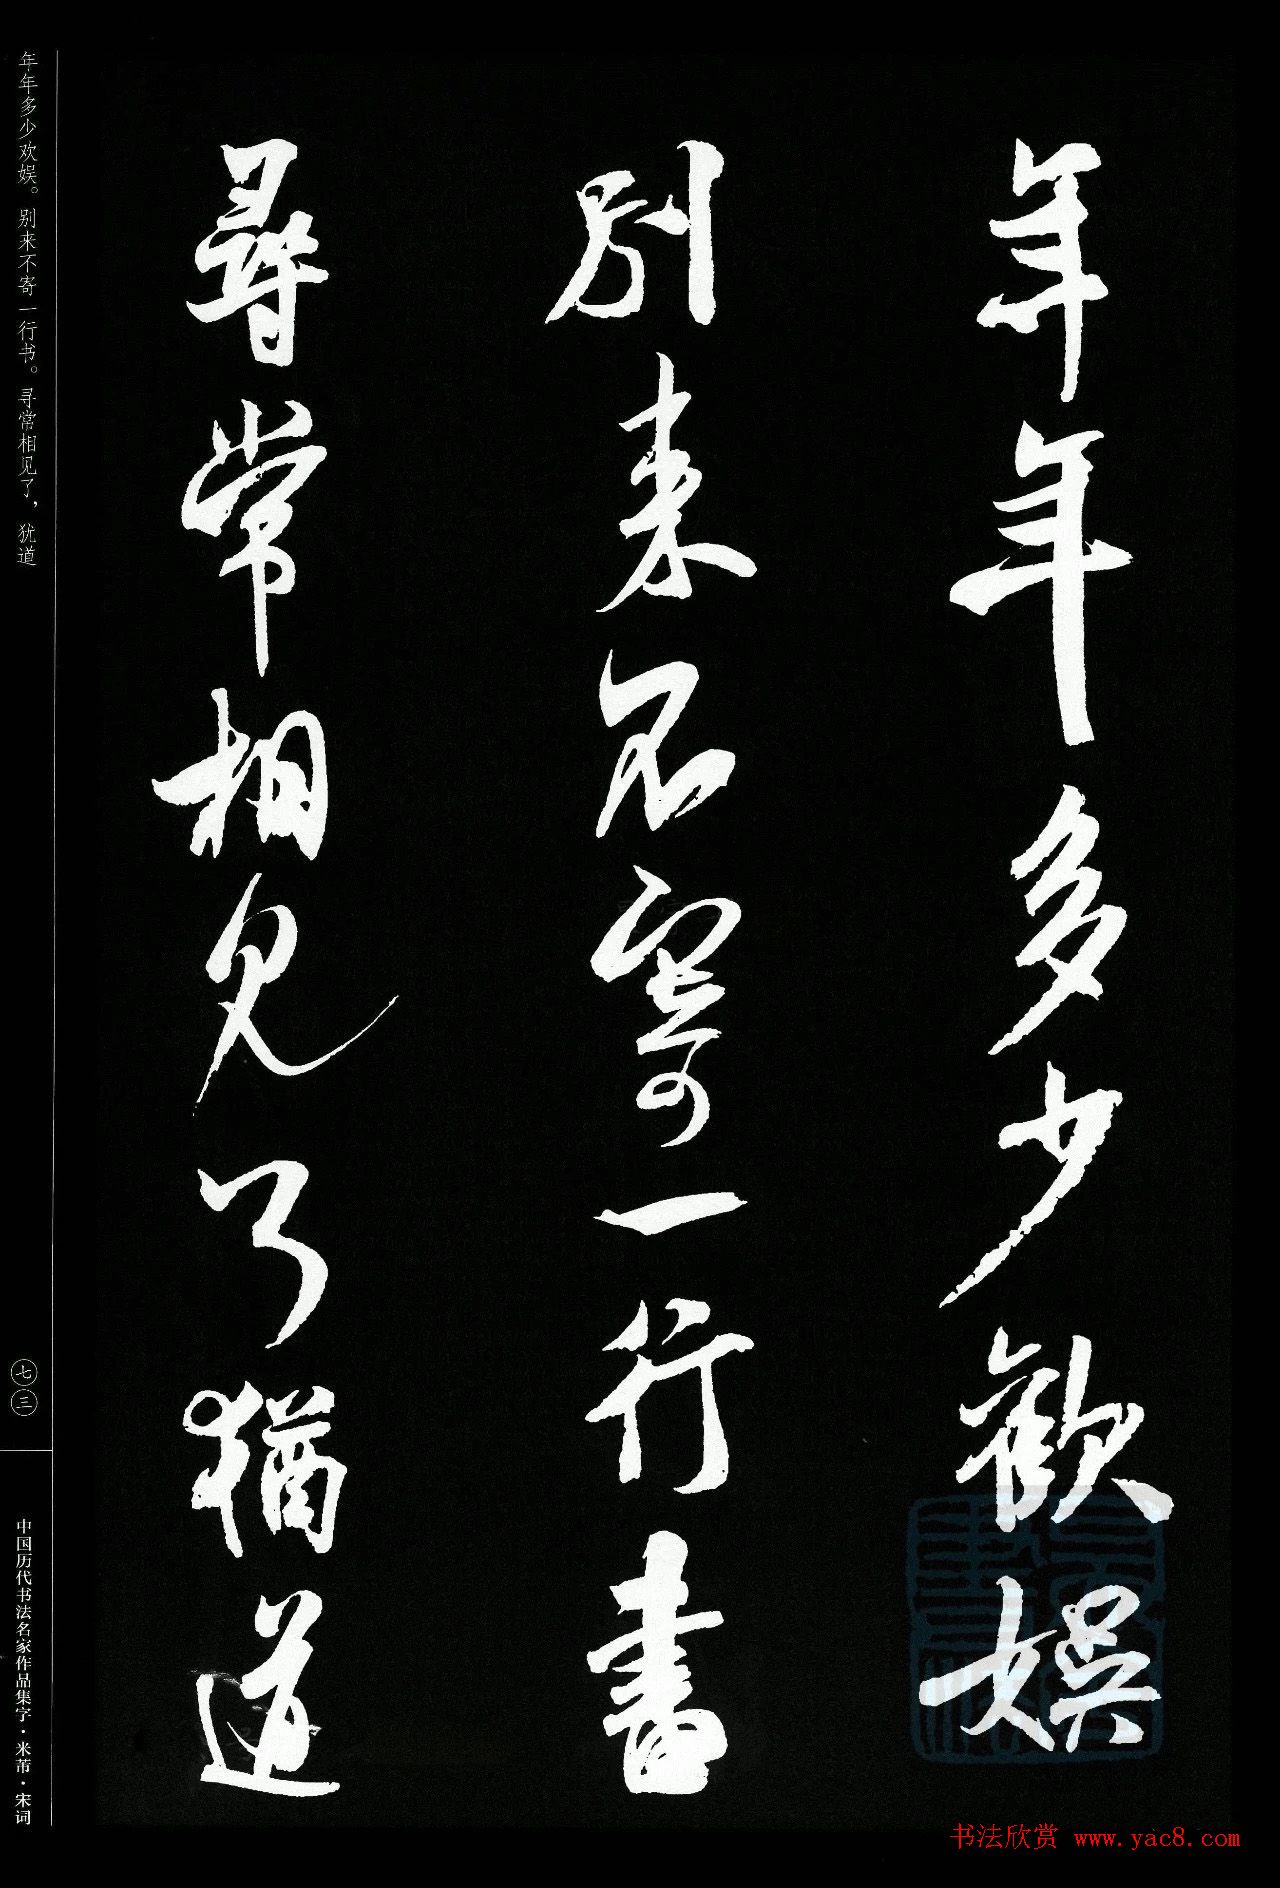 年年多少歡娛
別來不寄一行書
尋常相見了猶道
年年多少欢娱。别来不寄一行书。寻常相见了，犹道
七三
中国历代书法名家作品集字·米芾·宋词
书法欣赏 www.yac8.com